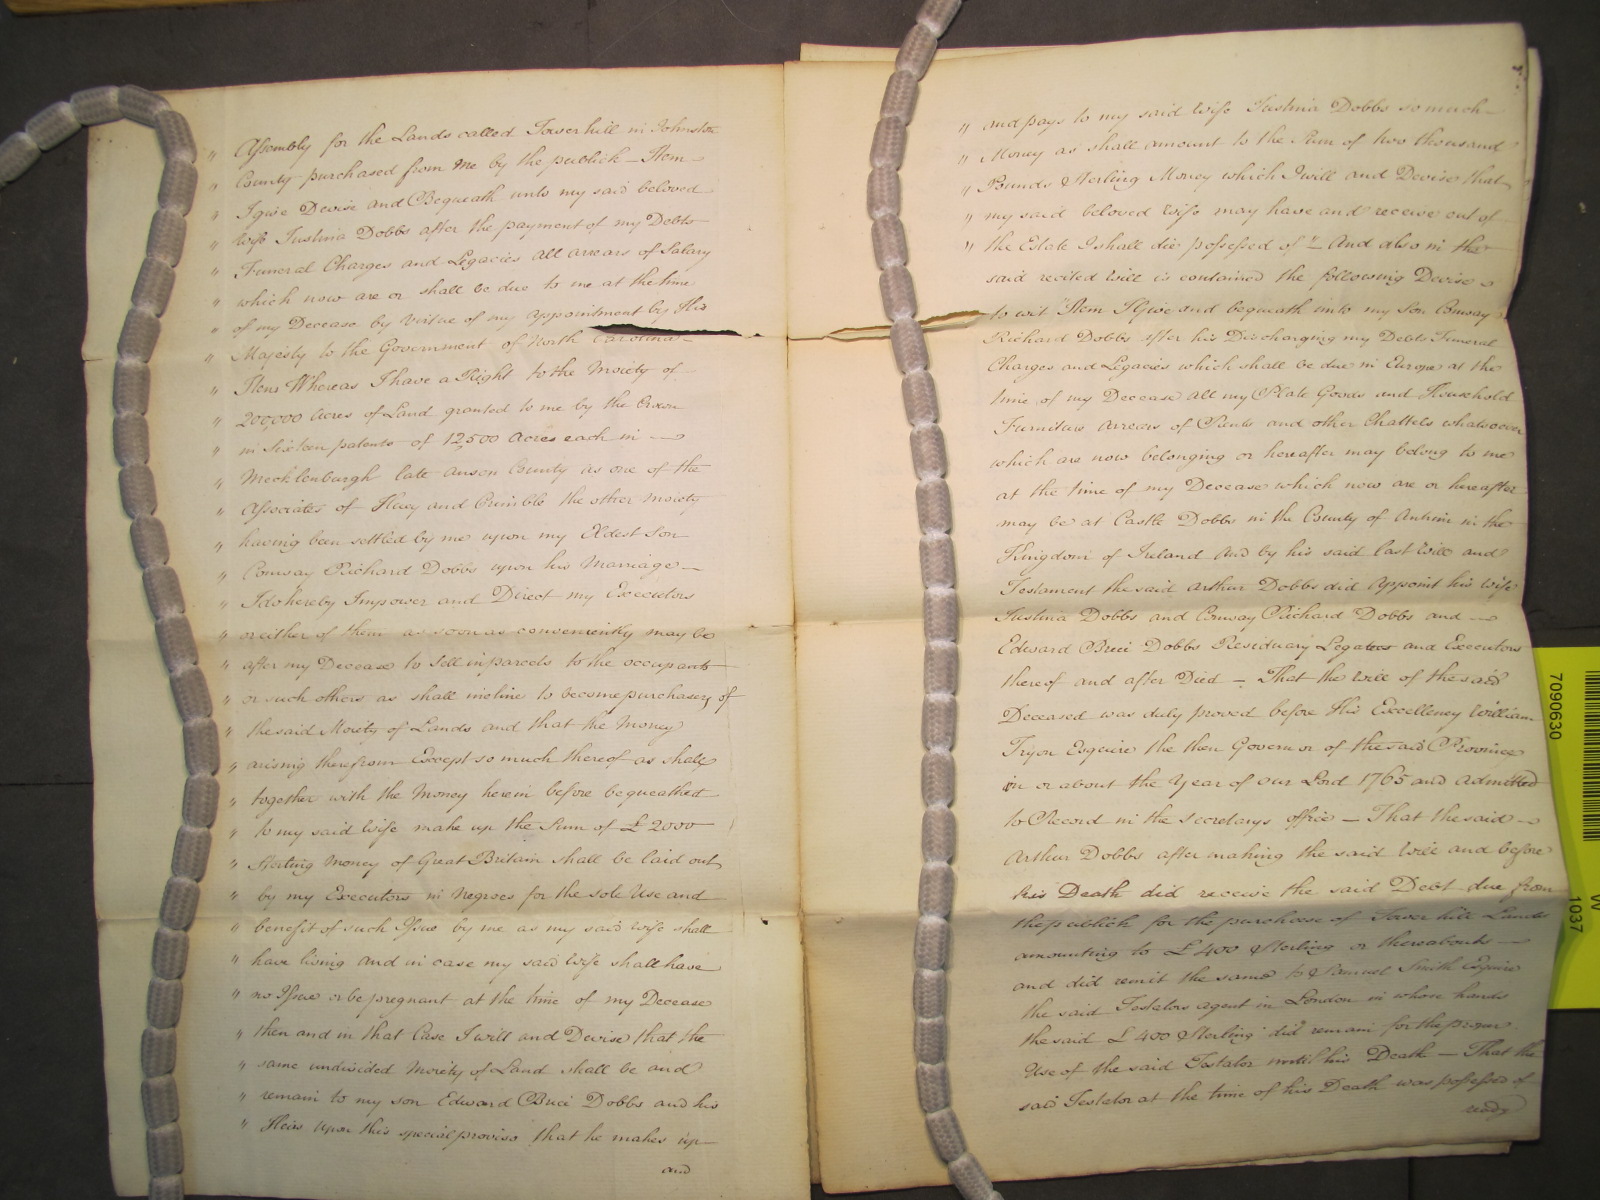 " Assembly for the Lands called Tower hill in Johnston
" County purchased from me by the publick — Item —
" I give Devise and Bequeath unto my said beloved
" wife Justina Dobbs after the payment of my Debts
" Funeral Charges and Legacies all arrears of Salary
" which now are or shall be due to me at the time
" of my Decease by virtue of my appointment by His
" Majesty to the Government of North Carolina —
" Item Whereas I have a Right to the Moiety of
" 200,000 acres of Land granted to me by the Crown
" in Sixteen patents of 12,500 acres each in —
" Mecklenburgh late anson County as one of the
" Associates of Huey and Crimble the other moiety
" having been settled by me upon my Eldest Son
" Conway Richard Dobbs upon his Marriage —
" I do hereby Impower and Direct my Executors
" or either of them as soon as conveniently may be
" after my Decease to Sell in parcels to the occupants
" or such others as shall incline to become purchasers of
" the said Moiety of Lands and that the Money
" arising therefrom Except so much thereof as shall
" together with the Money herein before bequeathed
" to my said wife make up the Sum of £ 2000
" Sterling Money of Great Britain shall be laid out
" by my Executors in Negroes for the sole Use and
" benefit of such Issue by me as my said wife shall
" have living and in case my said wife shall have
" no Issue or be pregnant at the time of my Decease
" then and in that Case I will and Devise that the
" same undivided Moiety of Land shall be and
" remain to my son Edward Brice Dobbs and his
" Heirs upon this special proviso that he makes up
and
" and pays to my said wife Justina Dobbs so much
" Money as shall amount to the Sum of two thousand
" Pounds Sterling Money which I will and Devise that
" my said beloved wife may have and receive out of
" the Estate I shall die possessed of " — And also in the
said recited will is contained the following Devise
to wit "Item I Give and bequeath unto my Son Conway
Richard Dobbs after his Discharging my Debts Funeral
Charges and Legacies which shall be due in Europe at the
time of my Decease all my Plate Goods and Household
Furniture arrears of Rents and other Chattels whatsoever
which are now belonging or hereafter may belong to me
at the time of my Decease which now are or hereafter
may be at Castle Dobbs in the County of Antrim in the
Kingdom of Ireland and by his said last will and
Testament the said Arthur Dobbs did appoint his wife
Justina Dobbs and Conway Richard Dobbs and —
Edward Brice Dobbs Residuary Legatees and Executors
thereof and after Died — That the will of the said
Deceased was duly proved before His Excellency William
Tryon Esquire the then Governor of the said Province
in or about the Year of our Lord 1765 and admitted
to Record in the secretarys office — That the said —
Arthur Dobbs after making the said will and before
his Death did receive the said Debt due from
the publick for the purchase of Tower hill Lands
amounting to £ 400 Sterling or thereabouts —
and did remit the same to Samuel Smith Esquire
the said Testators agent in London in whose hands
the said £ 400 Sterling did remain for the proper
Use of the said Testator until his Death — That the
said Testator at the time of his Death was possessed of
ready
7090630
W
1037